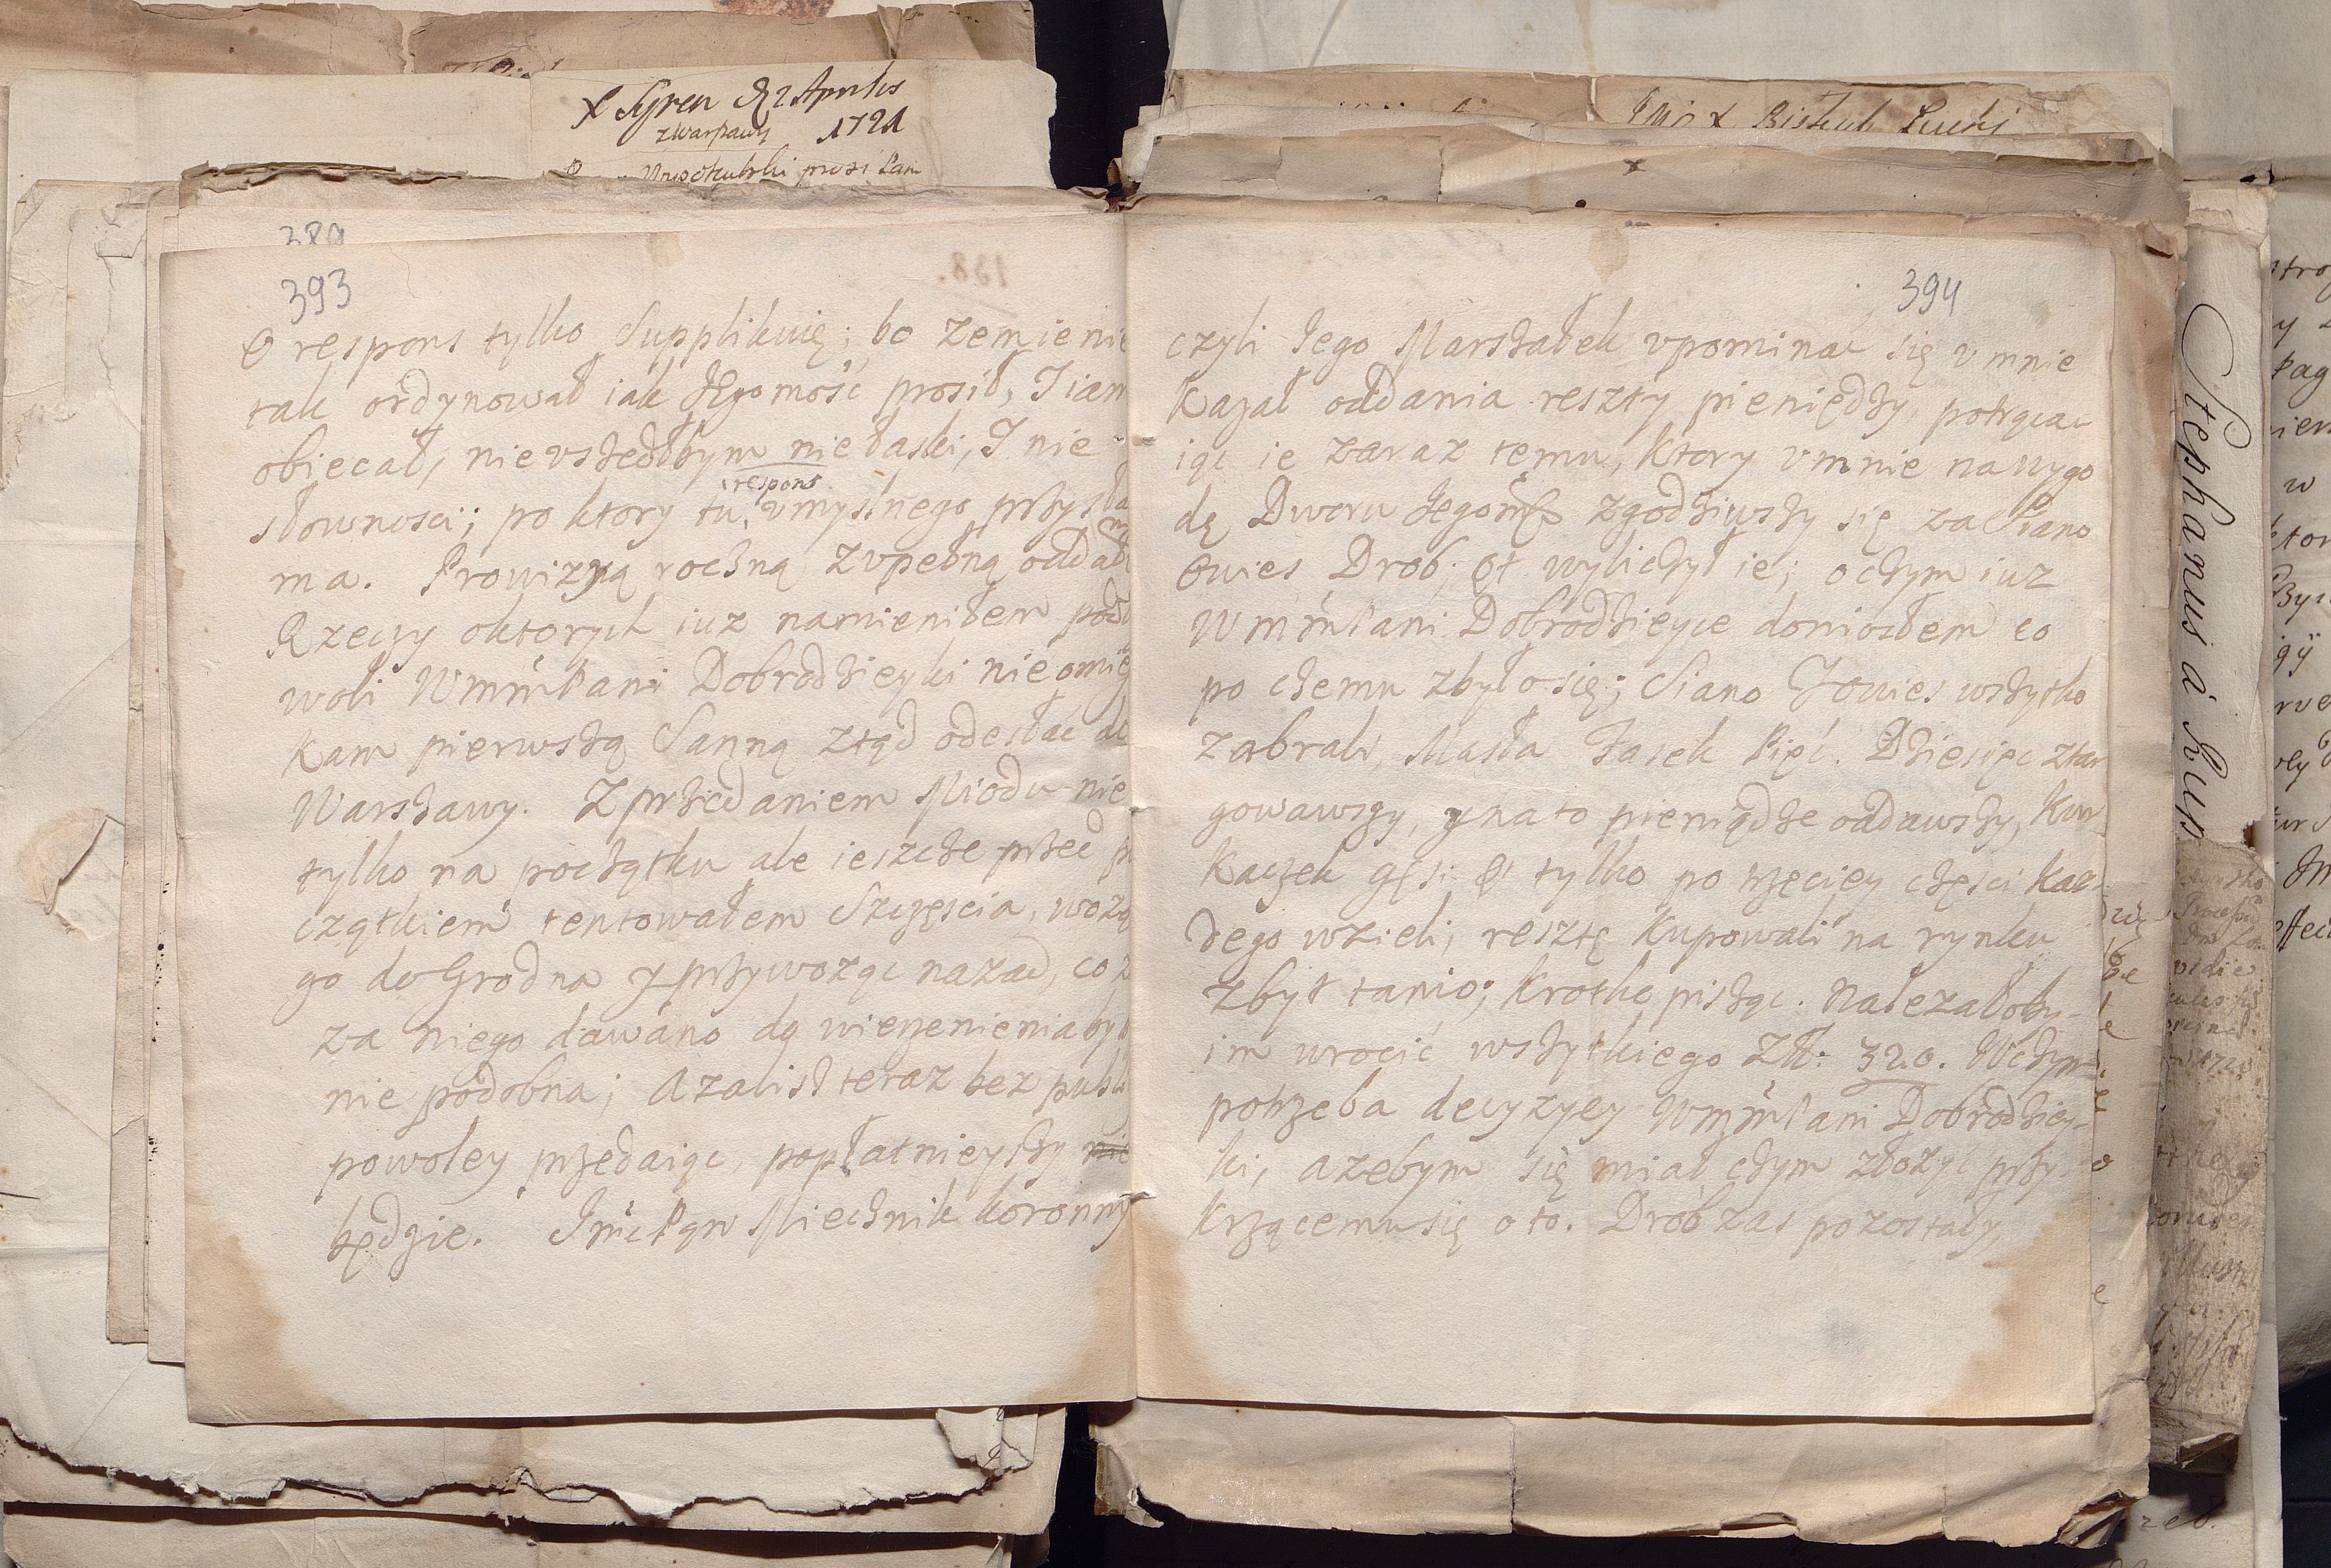 X Syren d 2 Aprilis
z Warszawy 1721
389
393
O respons tylko Supplikuię; bo ze mie nie
tak ordynował iak Jegomość prosił, J iam
obiecał, nie vszedłbym niełaski, J nie
respons
słowności; po ktory tu vmyślnego przysła
ma. Prowizyą roczną zvpełną oddał
Rzeczy oktorych iuz namieniłem podł
woli WmMPani Dobrodzieyki nieomie
kam pierwszą Sanną ztąd odesłać do
Warszawy. Z przedaniem Miodu nie
tylko na początku ale ieszcze przed p
czątkiem tentowałem Szczęścia, wożą
go do Grodna y przywożąc nazad, co z
za niego dawano dą wierzenienia by
nie podobna; Azalisz teraz bez publ
powoley przedaiąc, popłatnieyszy nie
będzie. JmcPan Miecznik koronny
138.
JMC X Biskub Lucki
394
czyli Jego Marszałek vpominać się v mnie
Kazał oddania reszty pieniędzy, potrąca
iąc ie zaraz temu, Ktory vmnie na wygo
dę Dworu Jegomści zgodziwszy się za Siano
Owies Drob; Et wyliczył ie; o czym iuz
WmMPani Dobrodzieyce doniosłem co
po czemu zbyło się; Siano Jowies wszytko
zabrali, Masła Fasek Pięć. Dziesięc ztar
gowawszy, y na to pieniądze oddawszy, Kur
Kaczek gęsi Et tylko po trzeciey części kaz
dego wzieli, resztę Kupowali na rynku
zbyt tanio; krotko pisząc. Należałoby
im wrocić wszytkiego Zł: 320. Wczym
potrzeba decyzyey WmMPani Dobrodziey
ki, azebym się miał czym złozyć przy
Krzącemu się o to. Drob zas pozostały,
Stephanus à Rup